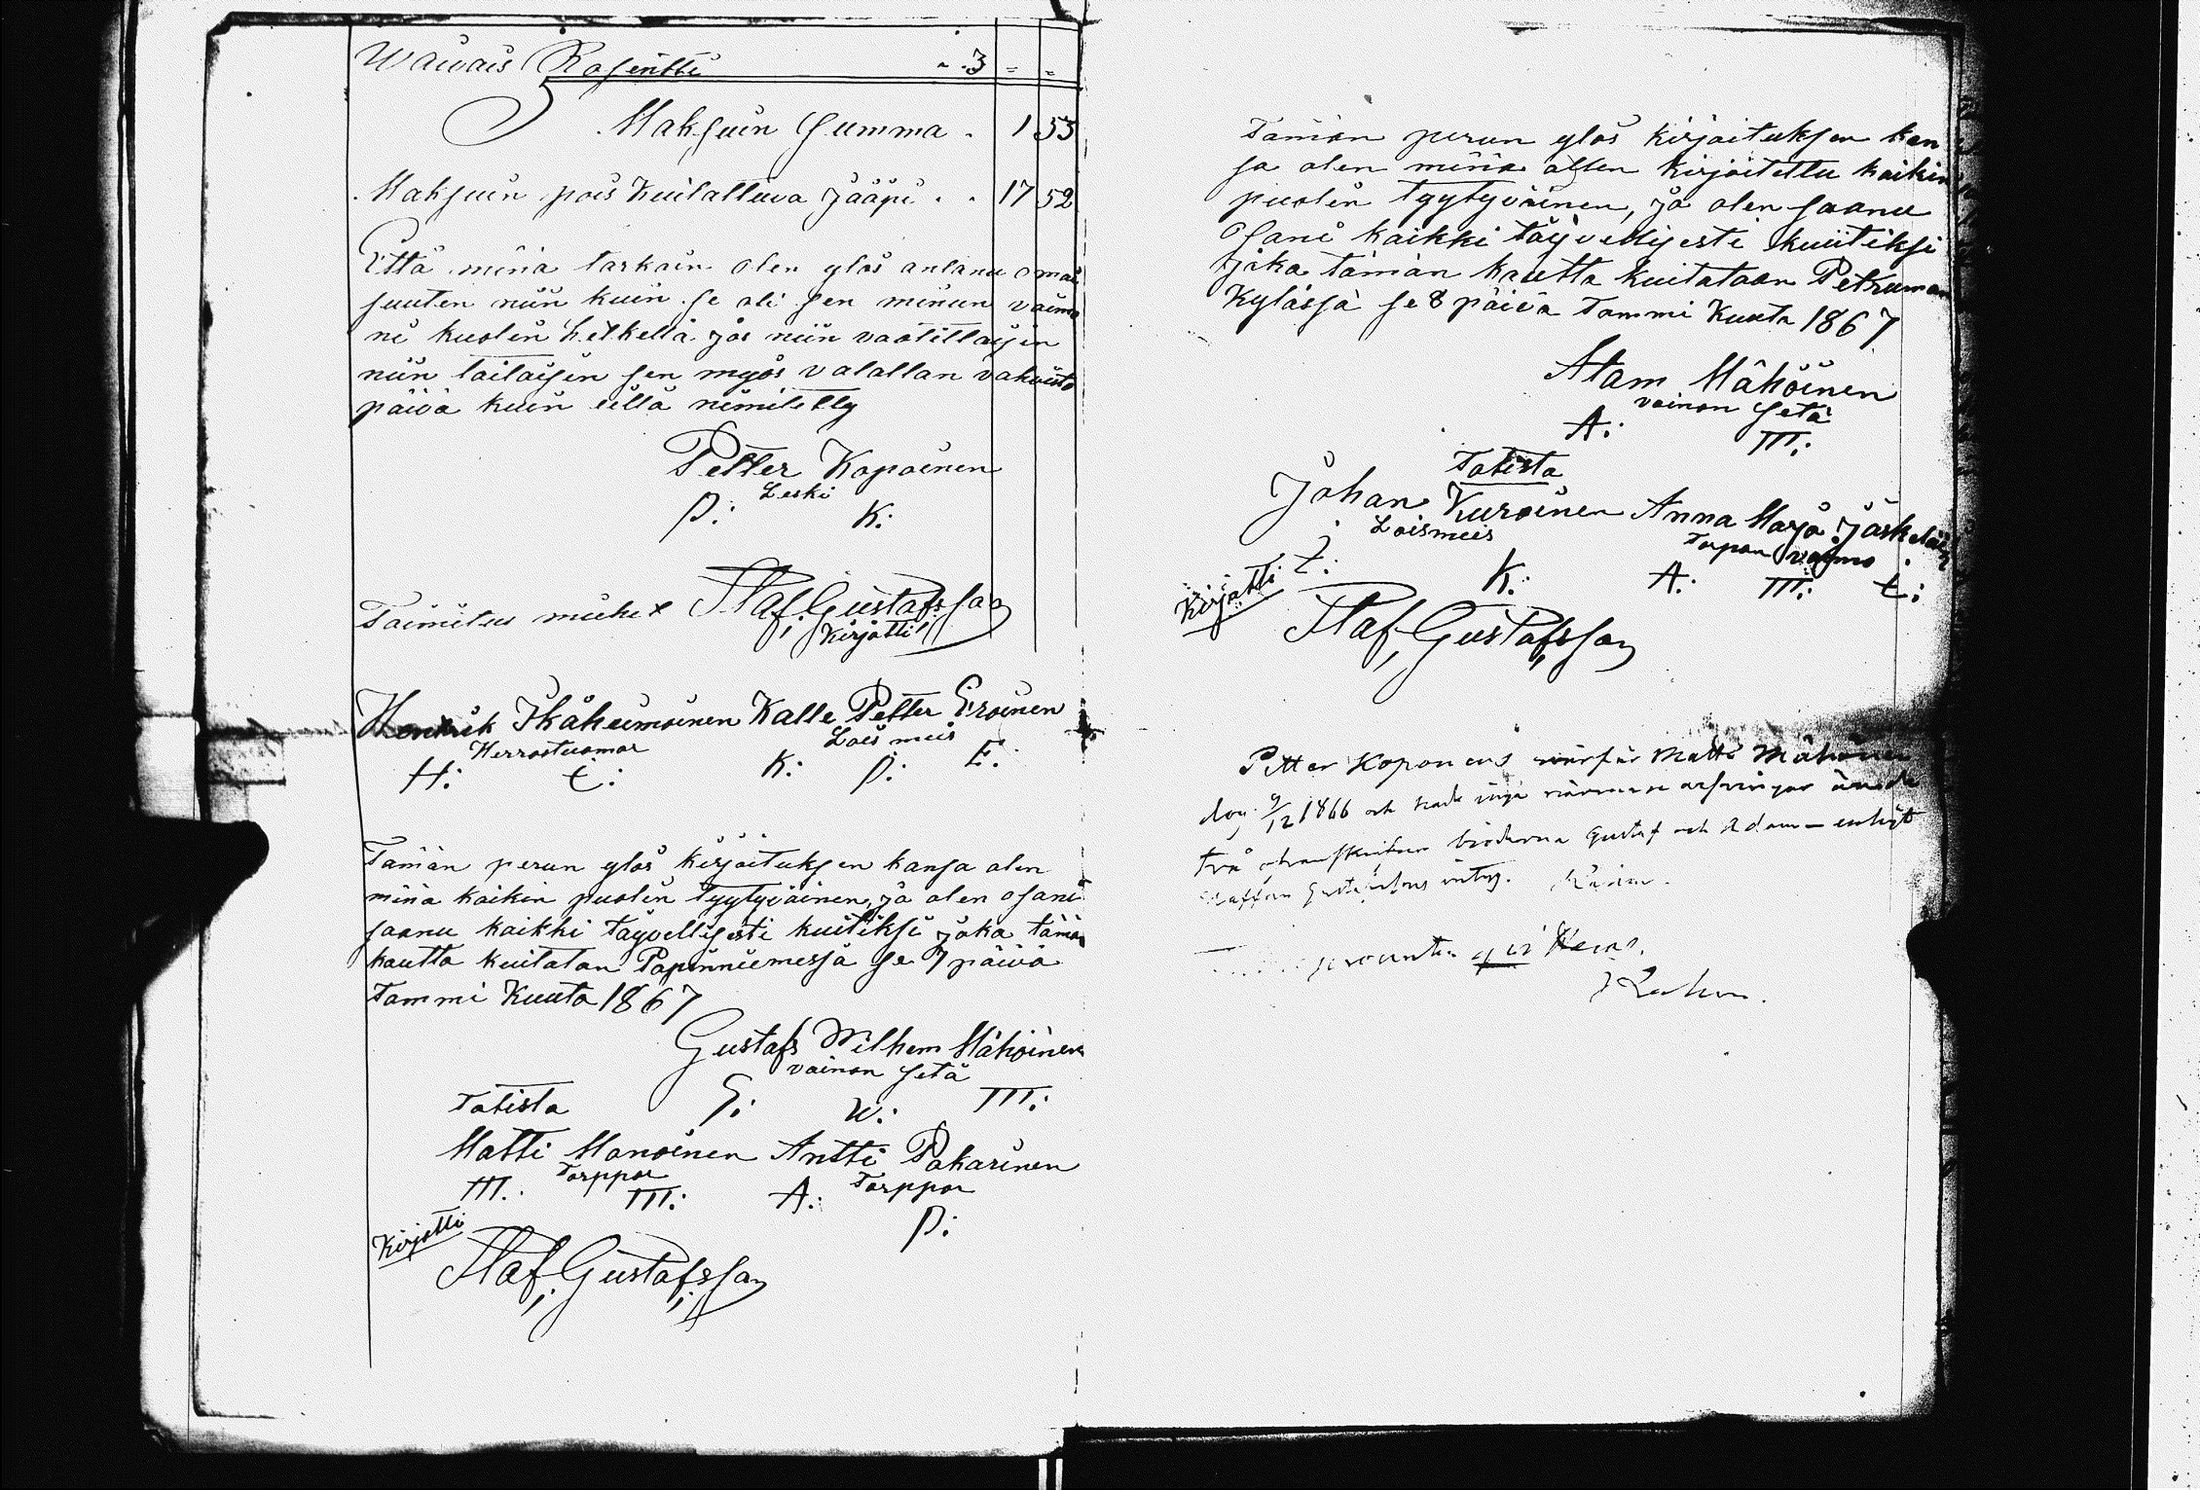 Waivais Rosentti " . 3 = =
Maksuin Summa . 1 53
Maksuin pois kuitattuva jääpi . . 17 52
Että minä tarkain olen ylös antanu omai
suuten niin kuin se oli sen minun vaimo
ni kuolin hetkellä jos niin vaatittaisin
niin taitaisin sen myös valallan vahvista
päivä kuin eillä nimitetty
Petter Kopoinen
Leski
P: K:
Toimitus miehet Staf, Gustafsson
Kirjåtti
Henrik Ikäheimoinen Kalle Petter Eroinen
Herrastuomar Lois mies
H: I: K: P: E:
Tämän perun ylös kirjoituksen kansa olen
minä kaikin puolin tyytyväinen, ja olen osani
saanu kaikki täyvellisesti kuitiksi joka tämän
kautta kuitatan Papinniemessä se 7 päivä
Tammi Kuuta 1867
Gustafs Wilhem Mähöinen
vainon setä
Totista G: W: M:
Matti Manoinen Antti Pakarinen
Torppar Torppar
M: M: A: P:
Kirjotti
Staf, Gustafsson
Tämän perun ylös kirjoituksen kan
sa olen minä allen kirjoitettu kaikin
puolin tyytyväinen, ja olen saanu
Osani kaikki täyvellisesti kuitiksi
joka tämän kautta kuitataan Petkuman
Kylässä se 8 päivä Tammi Kuuta 1867
Atam Mähöinen
vainon setä
A: M:
Totista
Johan Kuroinen Anna Marja Jäskeläin
Loismeis Torpan vaimo
J: K: A: M: J:
Kirjotti
Staf, Gustafsson
Petter Koponens Matts Mähönen
dog 9/12 1866 och hade inga närmare arfvingar än de
två bröderna Gustaf och Adam – enligt
Staffan Gustafssons intyg.